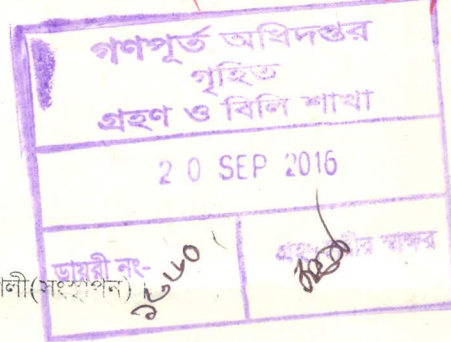 গণপূর্ত অধিদপ্তর
গৃহিত
গ্রহণ ও বিলি শাখা
2 0 SEP 2016
ডায়রী নং-
স্বাক্ষর
লী(সংস্থাপন)।